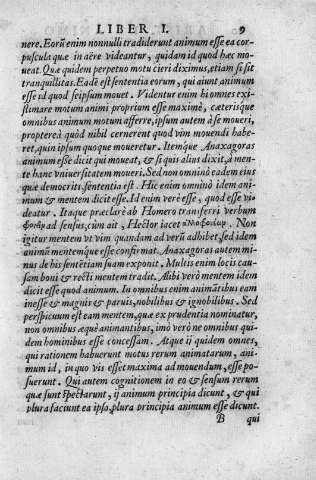 LIBER I. 9
nere. Eorũ enim nonnulli tradiderunt animum esse ea cor-
pusculа quæ in aëre videantur, quidam id quod hæc mo-
ueat. Quæ quidem perpetuo motu cieri diximus, etiam si sit
tranquillitas. Eadẽ est sententia eorum, qui aiunt animum
esse id quod seipsum mouet. Videntur enim bi omnes exi-
stimare motum animi proprium esse maximè, cæterisque
omnibus animum motum afferre, ipsum autem à se moueri,
propterea quòd nihil cernerent quod vim mouendi habe-
ret, quin ipsum quoque moueretur. Itemque Anaxagoras
animum esse dicit qui moueat, & si quis alius dixit, à men-
te hanc vniuersitatem moueri. Sed non omninò eadem eius
quæ democriti sententia est. Hic enim omninò idem ani-
mum & mentem dicit esse. Id enim verè esse, quod esse vi-
deatur. Itaque præclarè ab Homero transferri verbum
ad sensus, cùm ait, Hector iacet ἀλλοφρονέων. Non
igitur mentem vt vim quandam ad verũ adhibet, sed idem
animũ mentemque esse confirmat. Anaxagoras autem mi-
nus de his sentẽtiam suam exponit. Multis enim locis cau-
sam boni & recti mentem tradit. Alibi verò mentem idem
dicit esse quod animum. In omnibus enim animãtibus eam
inesse & magnis & paruis, nobilibus & ignobilibus. Sed
perspicuum est eam mentem, quæ ex prudentia nominatur,
non omnibus æquè animantibus, imò verò ne omnibus qui-
dem hominibus esse concessam. Atque ij quidem omnes,
qui rationem habuerunt motus rerum animatarum, ani-
mum id, in quo vis esset maxima ad mouendum, esse po-
suerunt. Qui autem cognitionem in eo & sensum rerum
quæ sunt spectarunt, ij animum principia dicunt, & qui
plura faciunt ea ipsa, plura principia animum esse dicunt.
B qui